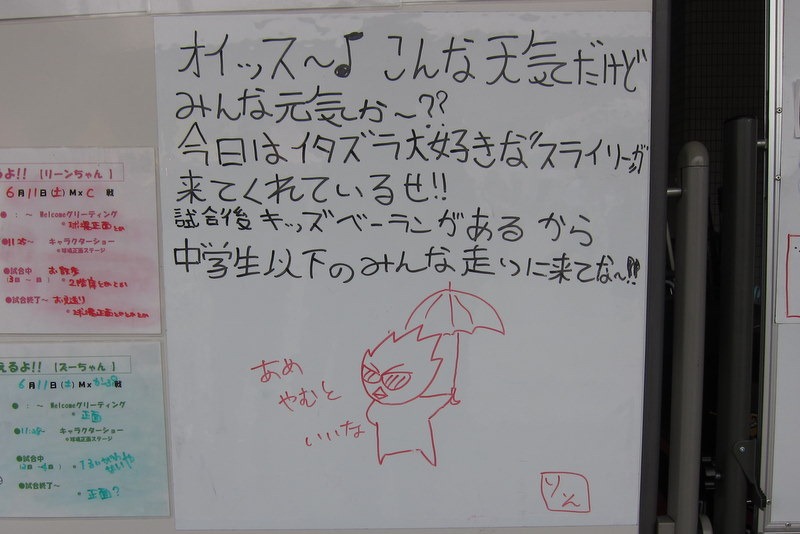 オイッス〜♪ こんな天気だけど
みんな元気か〜??
今日はイタズラ大好きな"スライリー"が
来てくれているぜ!!
試合後キッズベーランがあるから
中学生以下のみんな走りに来てな〜!!
あめ
やむと
いいな
りん
るよ!! 【リーンちゃん】
6月11日(土) M×C 戦
●：〜 Welcomeグリーティング
*球場正面とか
●11:25〜 キャラクターショー
*球場正面ステージ
●試合中 お散歩
*2階席とかとか
●試合終了〜 お見送り
*球場正面とかとかとか
えるよ!! 【ズーちゃん】
6月11日(土) M×
戦
●：〜 Welcomeグリーティング
*正面
●11:25〜 キャラクターショー
*球場正面ステージ
●試合中
●試合終了〜
*正面?